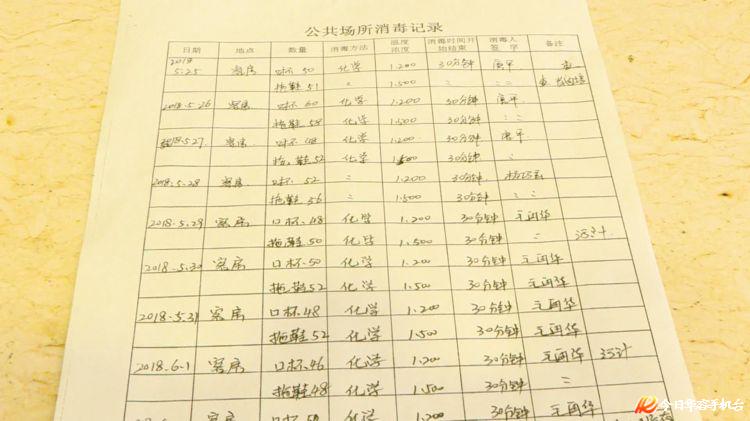 公共场所消毒记录
日期 地点 数量 消毒方法 温度浓度 消毒时间开始结束 消毒人签字 备注
2018 5.25 客房 口杯 50 化学 1.200 30分钟 唐平
拖鞋 51 〃 1.500 〃 〃
2018.5.26 客房 口杯 60 化学 1.200 30分钟 唐平
拖鞋 58 化学 1.500 30分钟 〃
2018.5.27. 客房 口杯 48 化学 1.200 30分钟 唐平
拖鞋 52 化学 30分钟 〃
2018.5.28 客房 口杯 52 〃 1.200 30分钟
拖鞋 56 〃 1.500 30分钟 〃
2018.5.29 客房 口杯.48 化学 1.200 30分钟
拖鞋.50 化学 1.500 30分钟 〃
2018.5.30 客房 口杯.50 化学 1.200 30分钟
拖鞋52 化学 1.500 30分钟
2018.5.31 客房 口杯.48 化学 1.200 30分钟
拖鞋52 化学 1.500 30分钟
2018.6.1 客房 口杯.46 化学 1.200 30分钟
拖鞋48 化学 1.500 30分钟 〃
客房 口杯 化学 1.200 30分钟
今日华容手机台